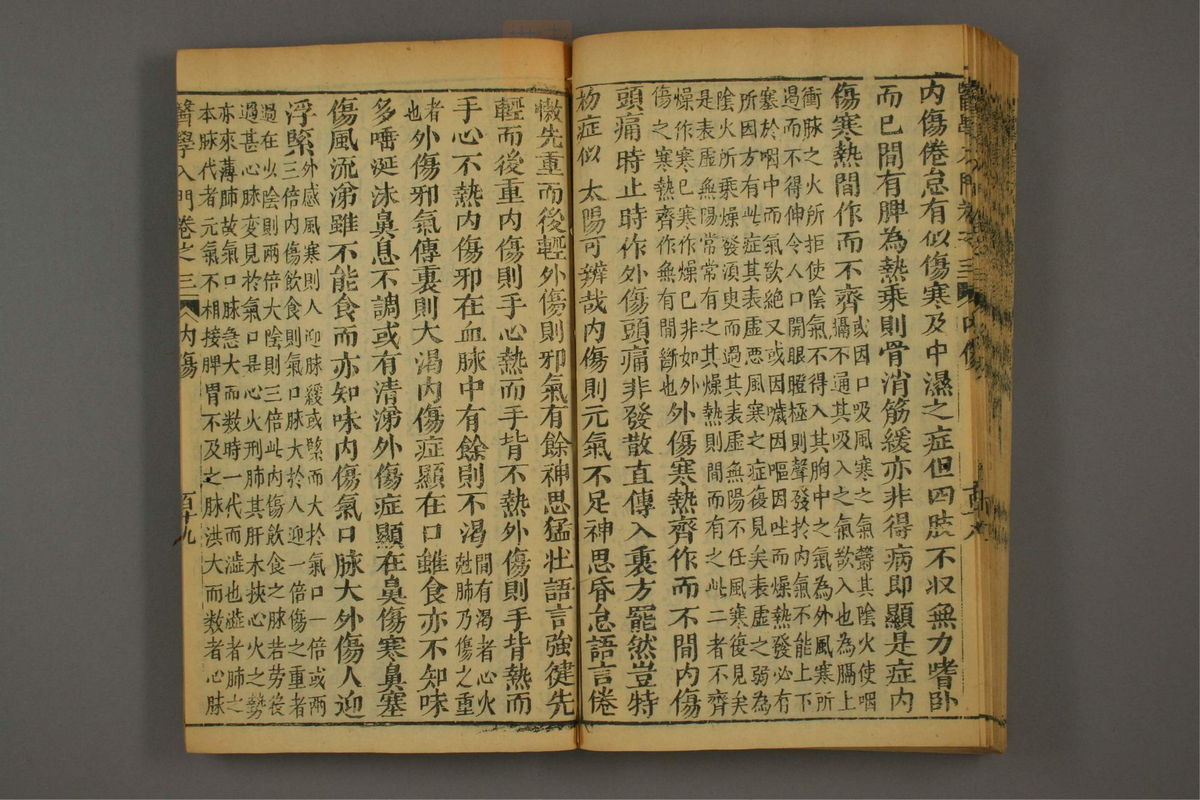 內傷倦怠有似傷寒及中濕之症但四肢不収無力嗜卧
而已間有脾為熱乗則骨消筋緩亦非得病即顯是症内
傷寒熱間作而不齊或因口吸風寒之氣鬱其陰火使咽
衝脉之火所拒使陰氣不得入其胸中之氣為外風寒所
過而不得伸令人口開眼瞪極則聲發扵内氣不能上下
塞扵咽中而氣欲絶又或因噦因嘔因吐而燥熱發必有
所因方有此症其表虚惡風寒之症復見矣表虚之弱為
陰火所乗燥發湏臾而過其表虚無陽不任風寒復見矣
是表虚無陽常常有之其燥熱則間而有之此二者不齊
燥作寒已寒作燥已非如外
傷之寒熱齊作無有間斷也外傷寒熱齊作而不間内傷
頭痛時止時作外傷頭痛非發散直傳入裏方罷然豈特
枌症似太陽可辨哉内傷則元氣不足神思昏怠語言倦
懶先重而後輕外傷則邪氣有餘神思猛壮語言強健先
輕而後重内傷則手心熱而手背不熱外傷則手背熱而
手心不熱内傷邪在血脉中有餘則不渴間有渴者心火
尅肺乃傷之重
者也外傷邪氣傳裏則大渴内傷症顯在口雖食亦不知味
多唾涎沫鼻息不調或有清涕外傷症顯在鼻傷寒鼻塞
傷風流涕雖不能食而亦知味内傷氣口脉大外傷人迎
浮緊外感風寒則人迎脉緩或緊而大扵氣口一倍或兩
三倍内傷飲食則氣口脉大扵人迎一倍傷之重者
過在少陰則兩倍太陰則三倍此内傷飲食之脉若労後
過甚心脉変見扵氣口是心火刑肺其肝木挾心火之勢
亦來薄肺故氣口脉急大而数時一代而澁也澁者肺之
本脉代者元氣不相接脾胃不及之脉洪大而数者心脉
醫學入門卷之三
内傷
百十九